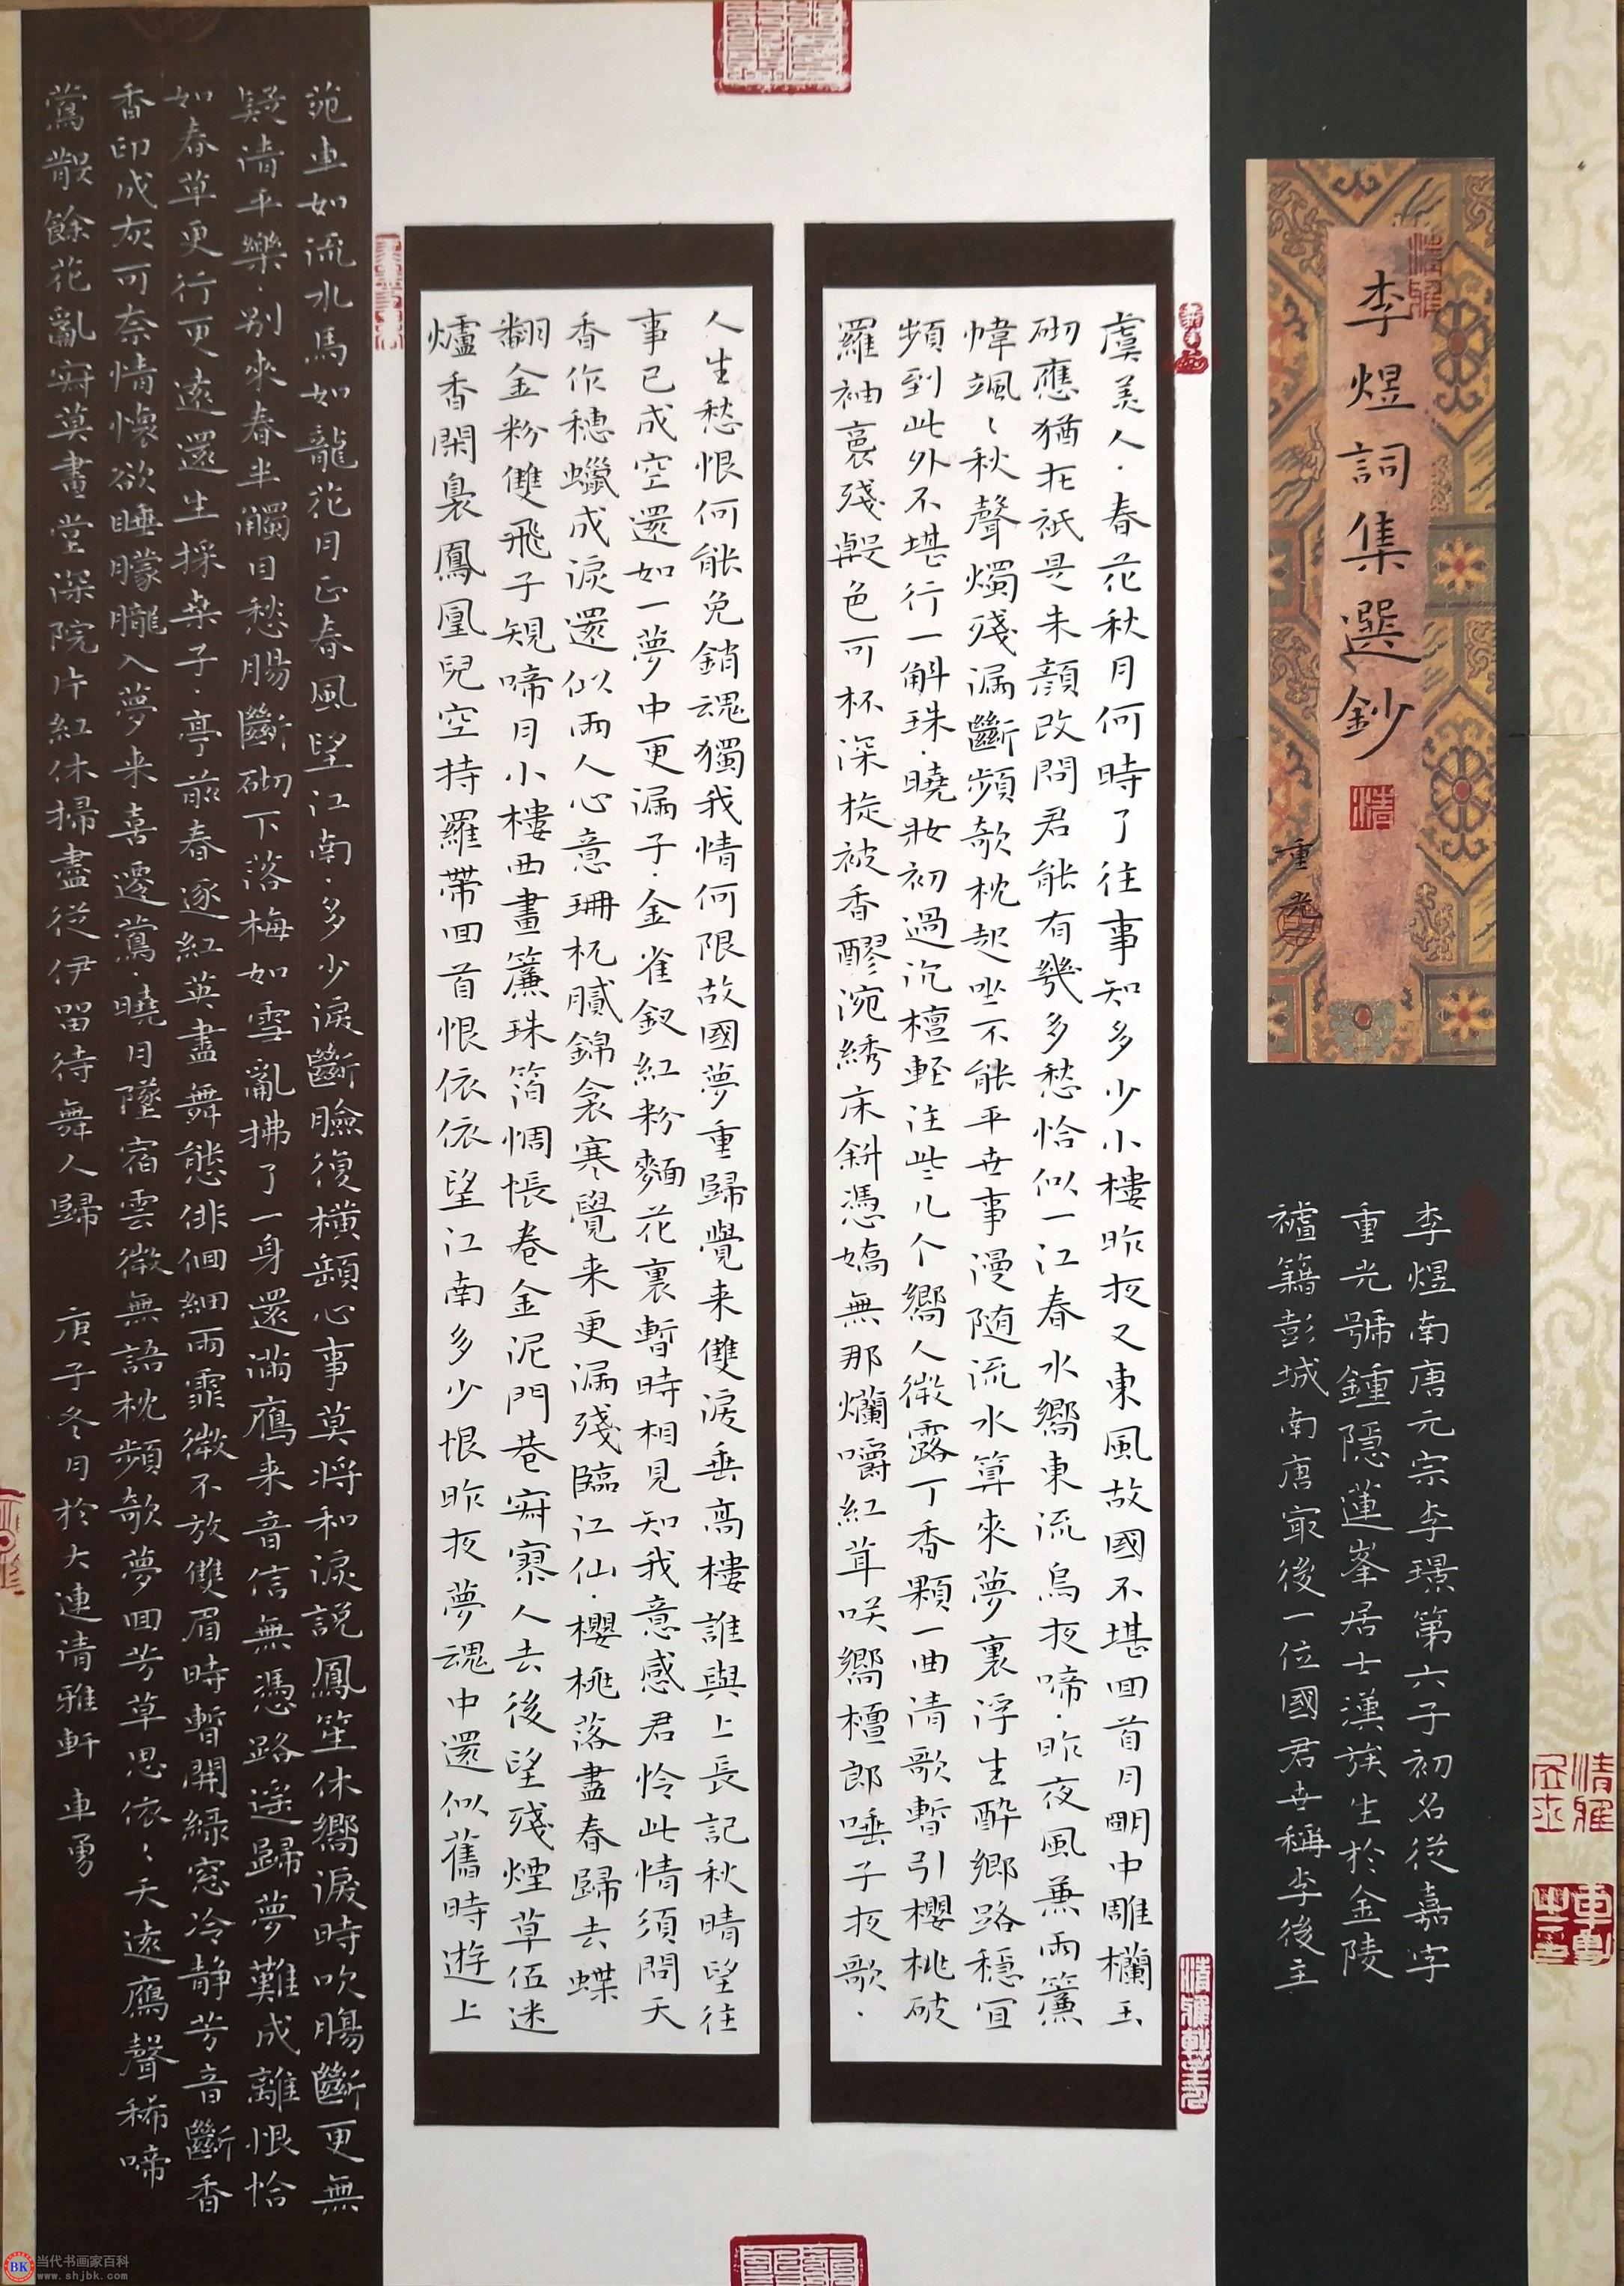 李煜詞集選鈔
重光
李煜南唐元宗李璟第六子初名從嘉字
重光號鍾隱蓮峯居士漢族生於金陵
祖籍彭城南唐最後一位國君世稱李後主
虞美人·春花秋月何時了往事知多少小樓昨夜又東風故國不堪回首月朙中雕欄玉
砌應猶在衹是朱顏改問君能有幾多愁恰似一江春水嚮東流烏夜啼·昨夜風兼雨簾
幃颯〻秋聲燭殘漏斷頻欹枕起坐不能平世事漫随流水算來夢裏浮生醉鄉路穩宜
頻到此外不堪行一斛珠·曉妝初過沉檀輕注些兒个嚮人微露丁香顆一曲清歌暫引櫻桃破
羅袖裛殘殷色可杯深旋被香醪涴綉床斜憑嬌無那爛嚼紅茸咲嚮檀郎唾子夜歌·
人生愁恨何能免銷魂獨我情何限故國夢重歸覺来雙淚垂高樓誰與上長記秋晴望往
事已成空還如一夢中更漏子·金雀釵紅粉麵花裏暫時相見知我意感君怜此情須問天
香作穗蠟成淚還似兩人心意珊枕膩錦衾寒覺来更漏殘臨江仙·櫻桃落盡春歸去蝶
翻金粉雙飛子規啼月小樓西畫簾珠箔惆悵卷金泥門巷寂寥人去後望殘煙草低迷
爐香閑裊鳳凰兒空持羅帶回首恨依依望江南多少恨昨夜夢魂中還似舊時遊上
苑車如流水馬如龍花月正春風望江南·多少淚斷臉復橫頤心事莫将和淚説鳳笙休嚮淚時吹腸斷更無
疑清平樂·别來春半觸目愁腸斷砌下落梅如雪亂拂了一身還滿鴈来音信無憑路遥歸夢難成離恨恰
如春草更行更遠還生採桑子·亭前春逐紅英盡舞態徘徊細雨霏微不放雙眉時暫開緑窓冷静芳音斷香
香印成灰可奈情懷欲睡朦朧入夢来喜遷鶯·曉月墜宿雲微無語枕頻欹夢回芳草思依〻天遠鴈聲稀啼
鶯散餘花亂寂莫畫堂深院片紅休掃盡從伊留待舞人歸 庚子冬月於大連清雅軒 車勇
清雅軒主
当代书画家百科
www.shjbk.com